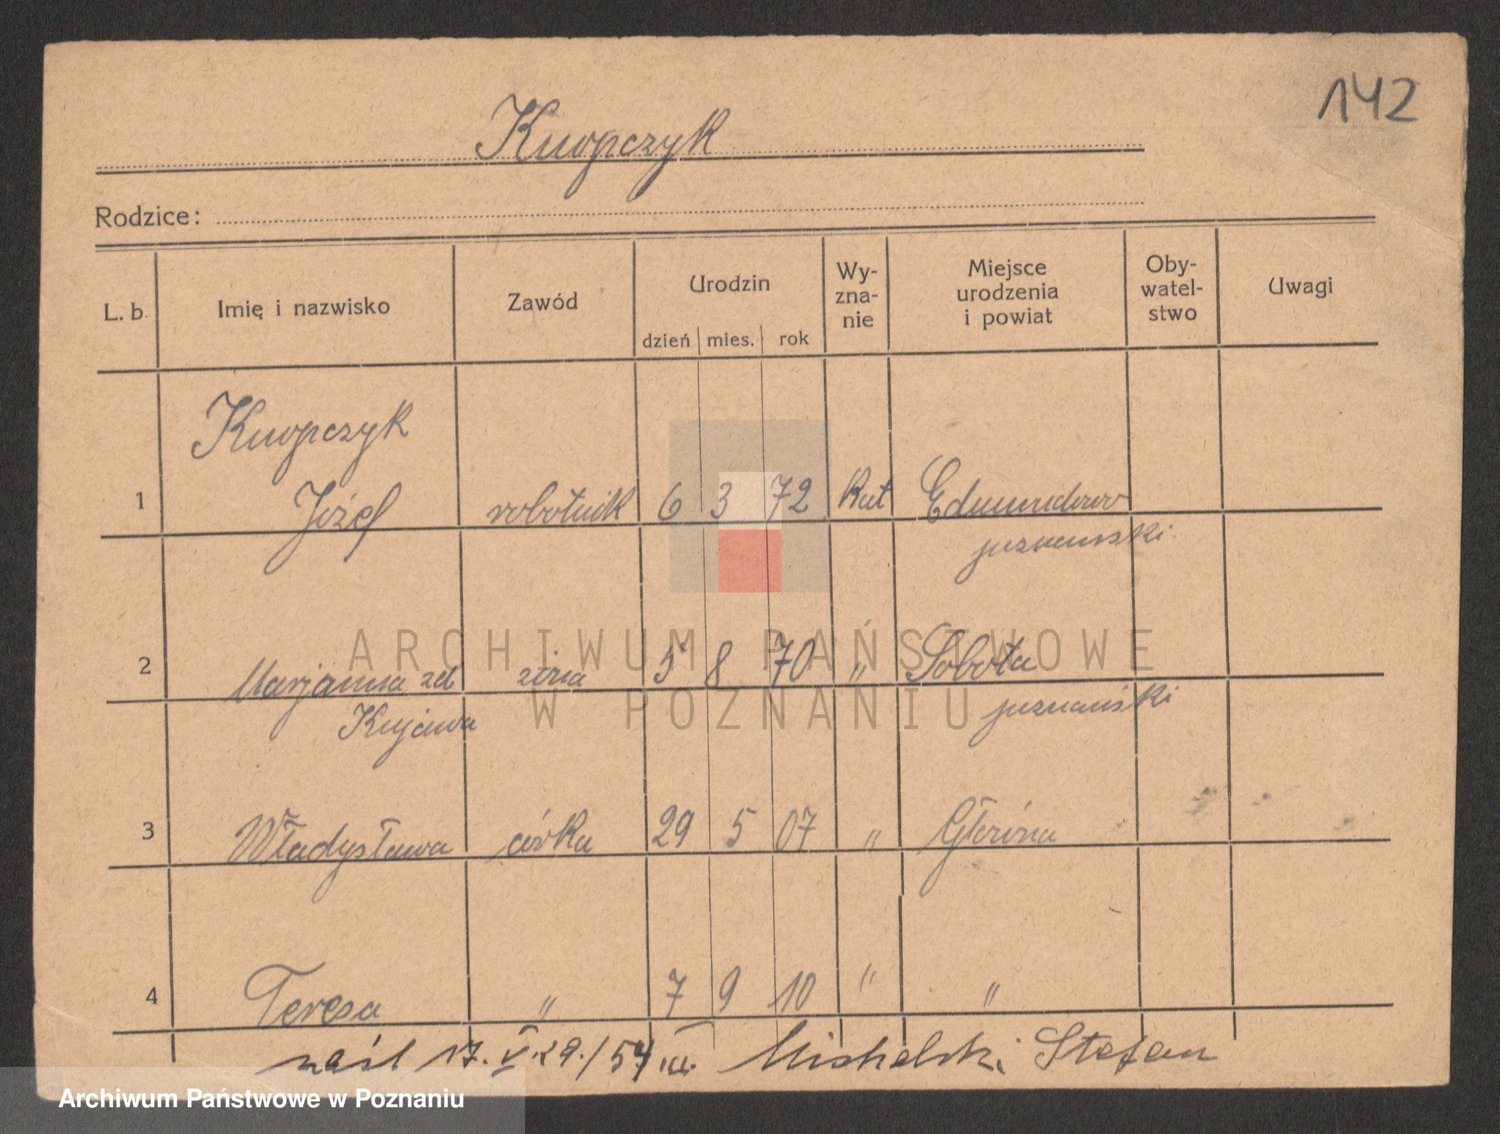 142
Knopczyk
Rodzice:
L. b. Imię i nazwisko Zawód Urodzin Wy- Miejsce Oby- Uwagi
zna- urodzenia watel-
nie i powiat stwo
dzień mies. rok
Knopczyk
1 Józef robotnik 6 3 72 kat Edmundowo
poznański
2 Marjanna zd żona 5 8 70 " Sobota
Kujawa poznański
3 Władysława córka 29 5 07 " Główna
4 Teresa " 7 9 10 " "
zaśl 17. V. 29./54 Michalski Stefan
ARCHIWUM PAŃSTWOWE
W POZNANIU
Archiwum Państwowe w Poznaniu